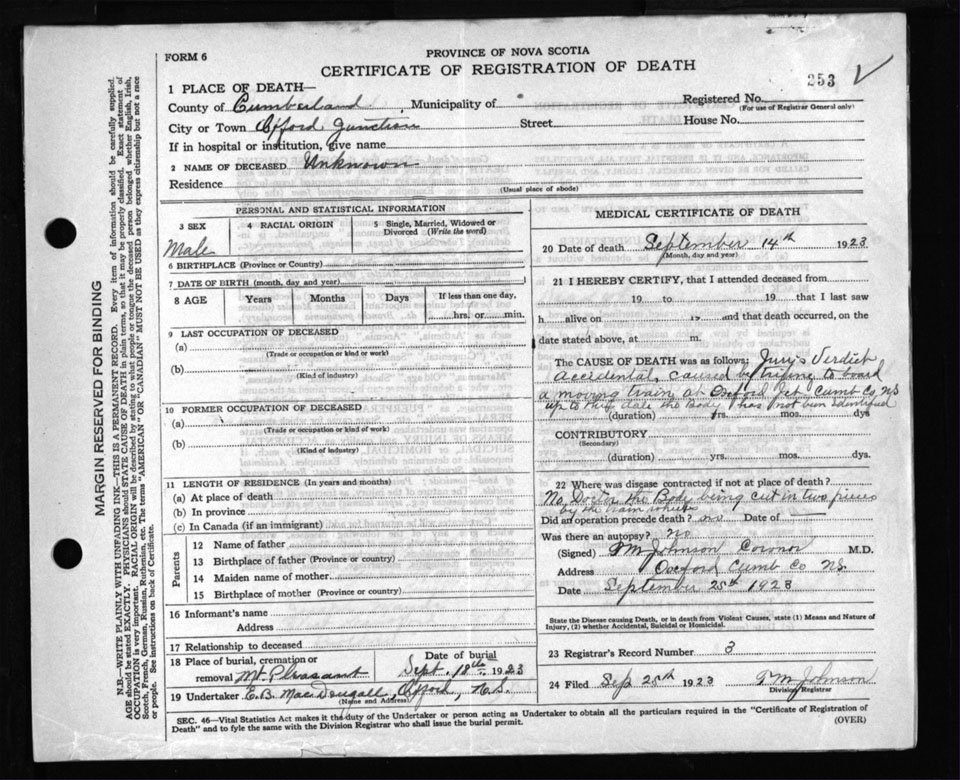 FORM 6
PROVINCE OF NOVA SCOTIA
CERTIFICATE OF REGISTRATION OF DEATH
253
1 PLACE OF DEATH—
County of Cumberland Municipality of Registered No.
(For use of Registrar General only)
City or Town Offord Junction Street House No.
If in hospital or institution, give name
2 NAME OF DECEASED Unknown
Residence
(Usual place of abode)
MARGIN RESERVED FOR BINDING
N.B.—WRITE PLAINLY WITH UNFADING INK—THIS IS A PERMANENT RECORD. Every item of information should be carefully supplied.
AGE should be stated EXACTLY. PHYSICIANS should STATE CAUSE OF DEATH in plain terms, so that it may be properly classified. Exact statement of
OCCUPATION is very important. RACIAL ORIGIN will be described by stating to what people or tongue the deceased person belonged whether English, Irish,
Scotch, French, German, Russian, Ruthenian, etc. The terms "AMERICAN" OR "CANADIAN" MUST NOT BE USED as they express citizenship but not a race
or people. See instructions on back of Certificate.
PERSONAL AND STATISTICAL INFORMATION
3 SEX
4 RACIAL ORIGIN
5 Single, Married, Widowed or
Divorced (Write the word)
Male
6 BIRTHPLACE (Province or Country)
7 DATE OF BIRTH (month, day and year)
8 AGE Years Months Days If less than one day,
hrs. or min.
9 LAST OCCUPATION OF DECEASED
(a)
(Trade or occupation or kind or work)
(b)
(Kind of industry)
10 FORMER OCCUPATION OF DECEASED
(a)
(Trade or occupation or kind of work)
(b)
(Kind of industry)
11 LENGTH OF RESIDENCE (In years and months)
(a) At place of death
(b) In province
(c) In Canada (if an immigrant)
Parents
12 Name of father
13 Birthplace of father (Province or country)
14 Maiden name of mother
15 Birthplace of mother (Province or country)
16 Informant's name
Address
17 Relationship to deceased
18 Place of burial, cremation or Date of burial
removal Mt. Pleasant Sept. 18th 1923
19 Undertaker E.B. MacDougall, Offord, N.S.
(Name and Address)
MEDICAL CERTIFICATE OF DEATH
20 Date of death September 14th 1923
(Month, day and year)
21 I HEREBY CERTIFY, that I attended deceased from
19 to 19 that I last saw
h alive on 19 and that death occurred, on the
date stated above, at m.
The CAUSE OF DEATH was as follows: Jury's Verdict
accidental, caused by trifing to board
a moving train at Oxford Jct. Cumb Co NS
up to this date the has not been identified
(duration) yrs. mos. dys
CONTRIBUTORY
(Secondary)
(duration) yrs. mos. dys.
22 Where was disease contracted if not at place of death?
No Doctor the Body being cut in two pieces
by the train wheels
Did an operation precede death? no Date of
Was there an autopsy? no
(Signed) T M Johnson Coronor M.D.
Address Oxford Cumb Co NS.
Date September 25th 1923
State the Disease causing Death, or in death from Violent Causes, state (1) Means and Nature
of Injury, (2) whether Accidental, Suicidal or Homicidal.
23 Registrar's Record Number 3
24 Filed Sep 25th 1923 T M Johnson
Division Registrar
SEC. 46—Vital Statistics Act makes it the duty of the Undertaker or person acting as Undertaker to obtain all the particulars required in the "Certificate of Registration of
Death" and to fyle the same with the Division Registrar who shall issue the burial permit.
(OVER)